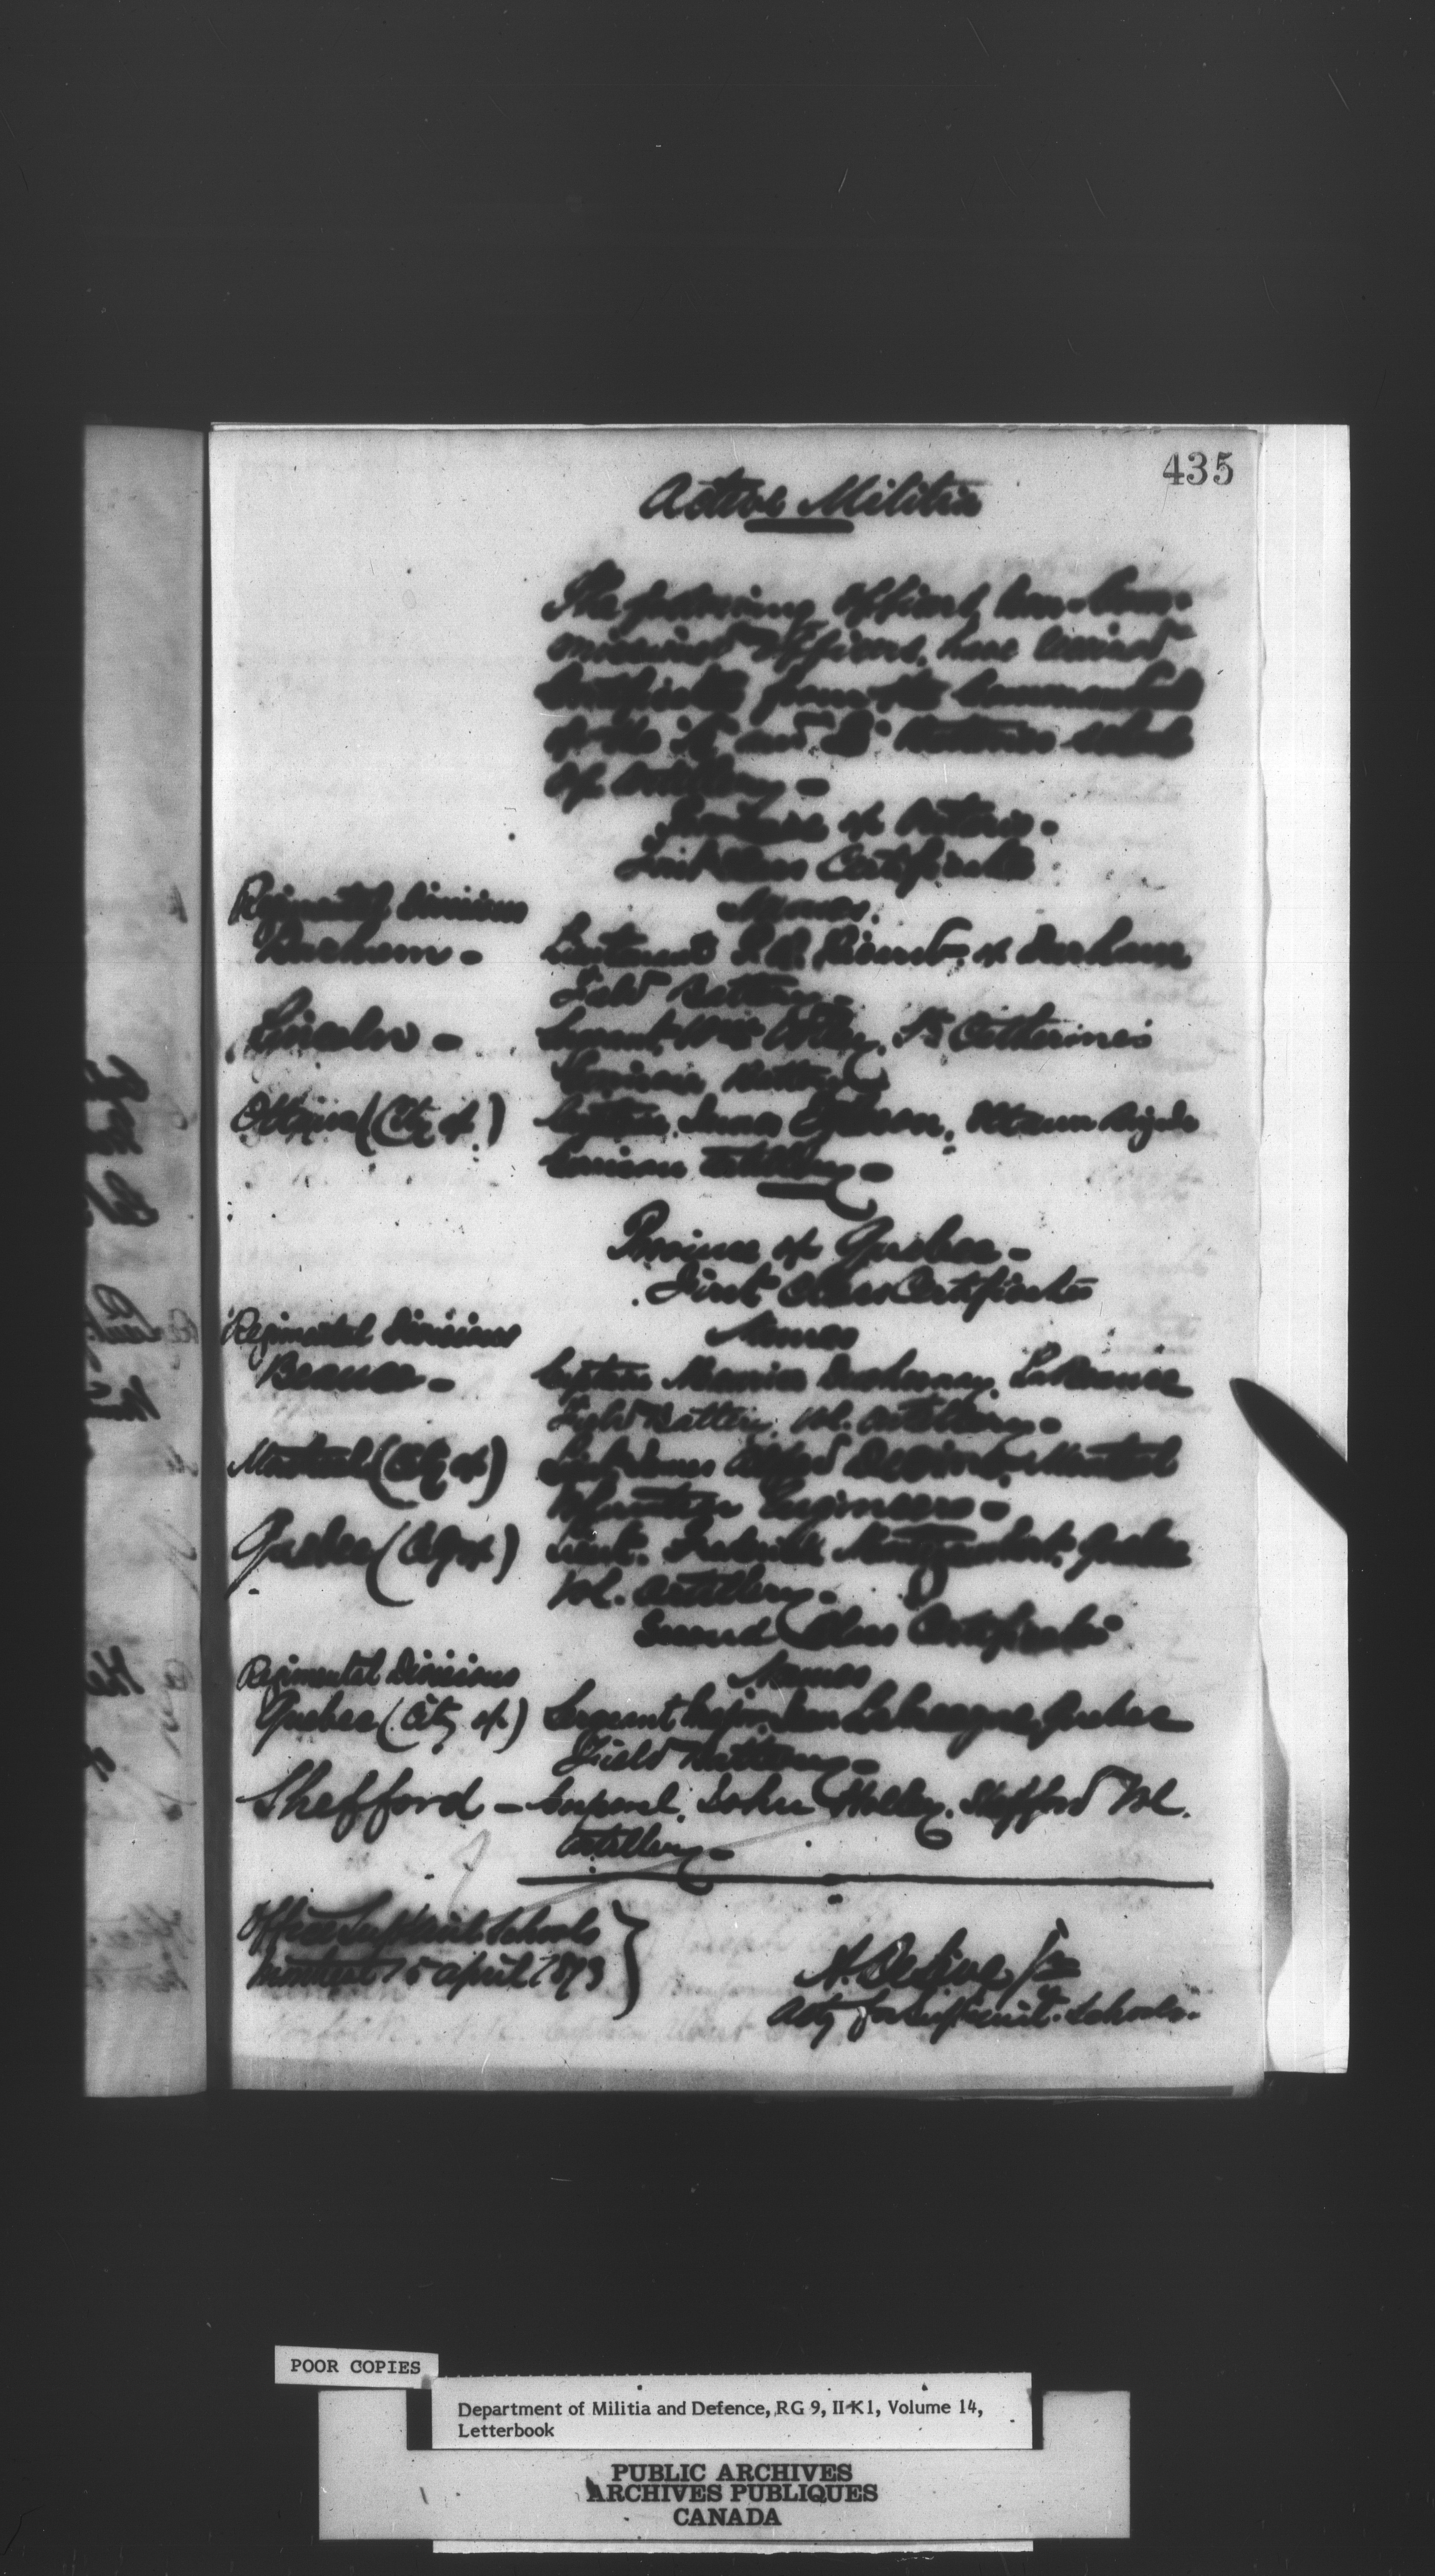 435
Active Militia
The following officers & non-com-
missioned officers, have received
Certificates from the Commandants
of the "A" and "B" Batteries schools
of Artillery -
Province of Ontario -
First Class Certificates
Regimental Divisions Names
Durham - Lieutenant of Durham
Field Battery -
Lincoln - Sergeant Wm St Catherines
Garrison Battery
Ottawa (City of) Captain Ottawa Brigade
Garrison Artillery -
Province of Quebec -
First Class Certificates
Regimental Divisions Names
Beauce - Captain Maurice Duchesnay,
Field Battery, Vol. Artillery -
Montreal (City of) Lieut James Alfred Montreal
Volunteer Engineers -
Quebec (City of) Lieut. Frederick Montizambert, Quebec
Vol. Artillery -
Second Class Certificates
Regimental Divisions Names
Quebec (City of) Sergeant Major Quebec
Field Battery -
Shefford - Corporal John Holley, Shefford Vol.
Artillery -
Office Supt Milit Schools
Montreal 15 April 1873
Actg for Supt Milit. Schools.
POOR COPIES
Department of Militia and Defence, RG 9, II K1, Volume 14,
Letterbook
PUBLIC ARCHIVES
ARCHIVES PUBLIQUES
CANADA